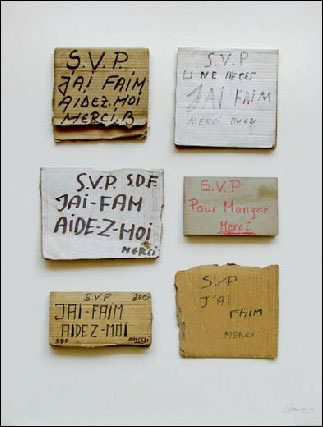 S.V.P.
J'AI FAIM
AIDEZ.MOI
MERCI.B
S.V.P
UNE
J'AI FAIM
MERCI
S.V.P. S.D.F
JAi-FAM
AiDE-Z-MOi
MERCi
S.V.P
Pour Manger
Merci
S.V.P
JAI-FAIM
AIDEZ-MOI
SDF merci
SVP
J'AI
FAIM
MERCI